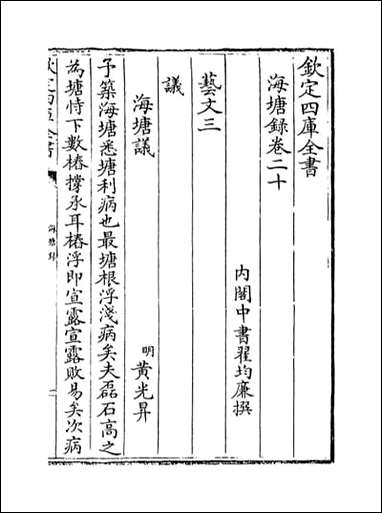 欽定四庫全書
海塘録卷二十
內閣中書翟均廉撰
藝文三
議
海塘議　明　黃光昇
予築海塘悉塘利病也最塘根浮淺病矣夫磊石高之
為塘恃下數樁撐承耳樁浮即宣露宣露敗易矣次病
欽定四庫全書
海塘録
一